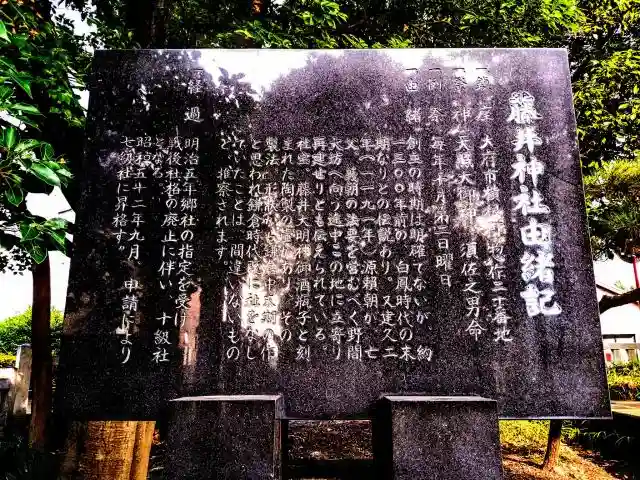 藤井神社由緒記
一鎮座 大府市横根町惣作二十番地
一祭神 天照大御神 須佐之男命
一例祭 毎年十月第二日曜日
一由緒 創立の時期は明確でないが 約
一三〇〇年前の 白鳳時代の末
期なりとの伝説あり。又建久二
年(一一九一年)源頼朝が 亡
父 義朝の法要を営むべく野間
大坊へ向う途中この地に立寄り
再建せりとも伝えられている。
社宝。藤井大明神御酒瓶子と刻
まれた陶製の壺があり、その
製法、形状から鎌倉中末期の作
と思われ鎌倉時代に社をなし
ていたことは、間違いないもの
と、推察されます。
一経過 明治五年郷社の指定を受け
戦後社格の廃止に伴い、十級社
となる
昭和五十二年九月 申請により
七級社に昇格す。